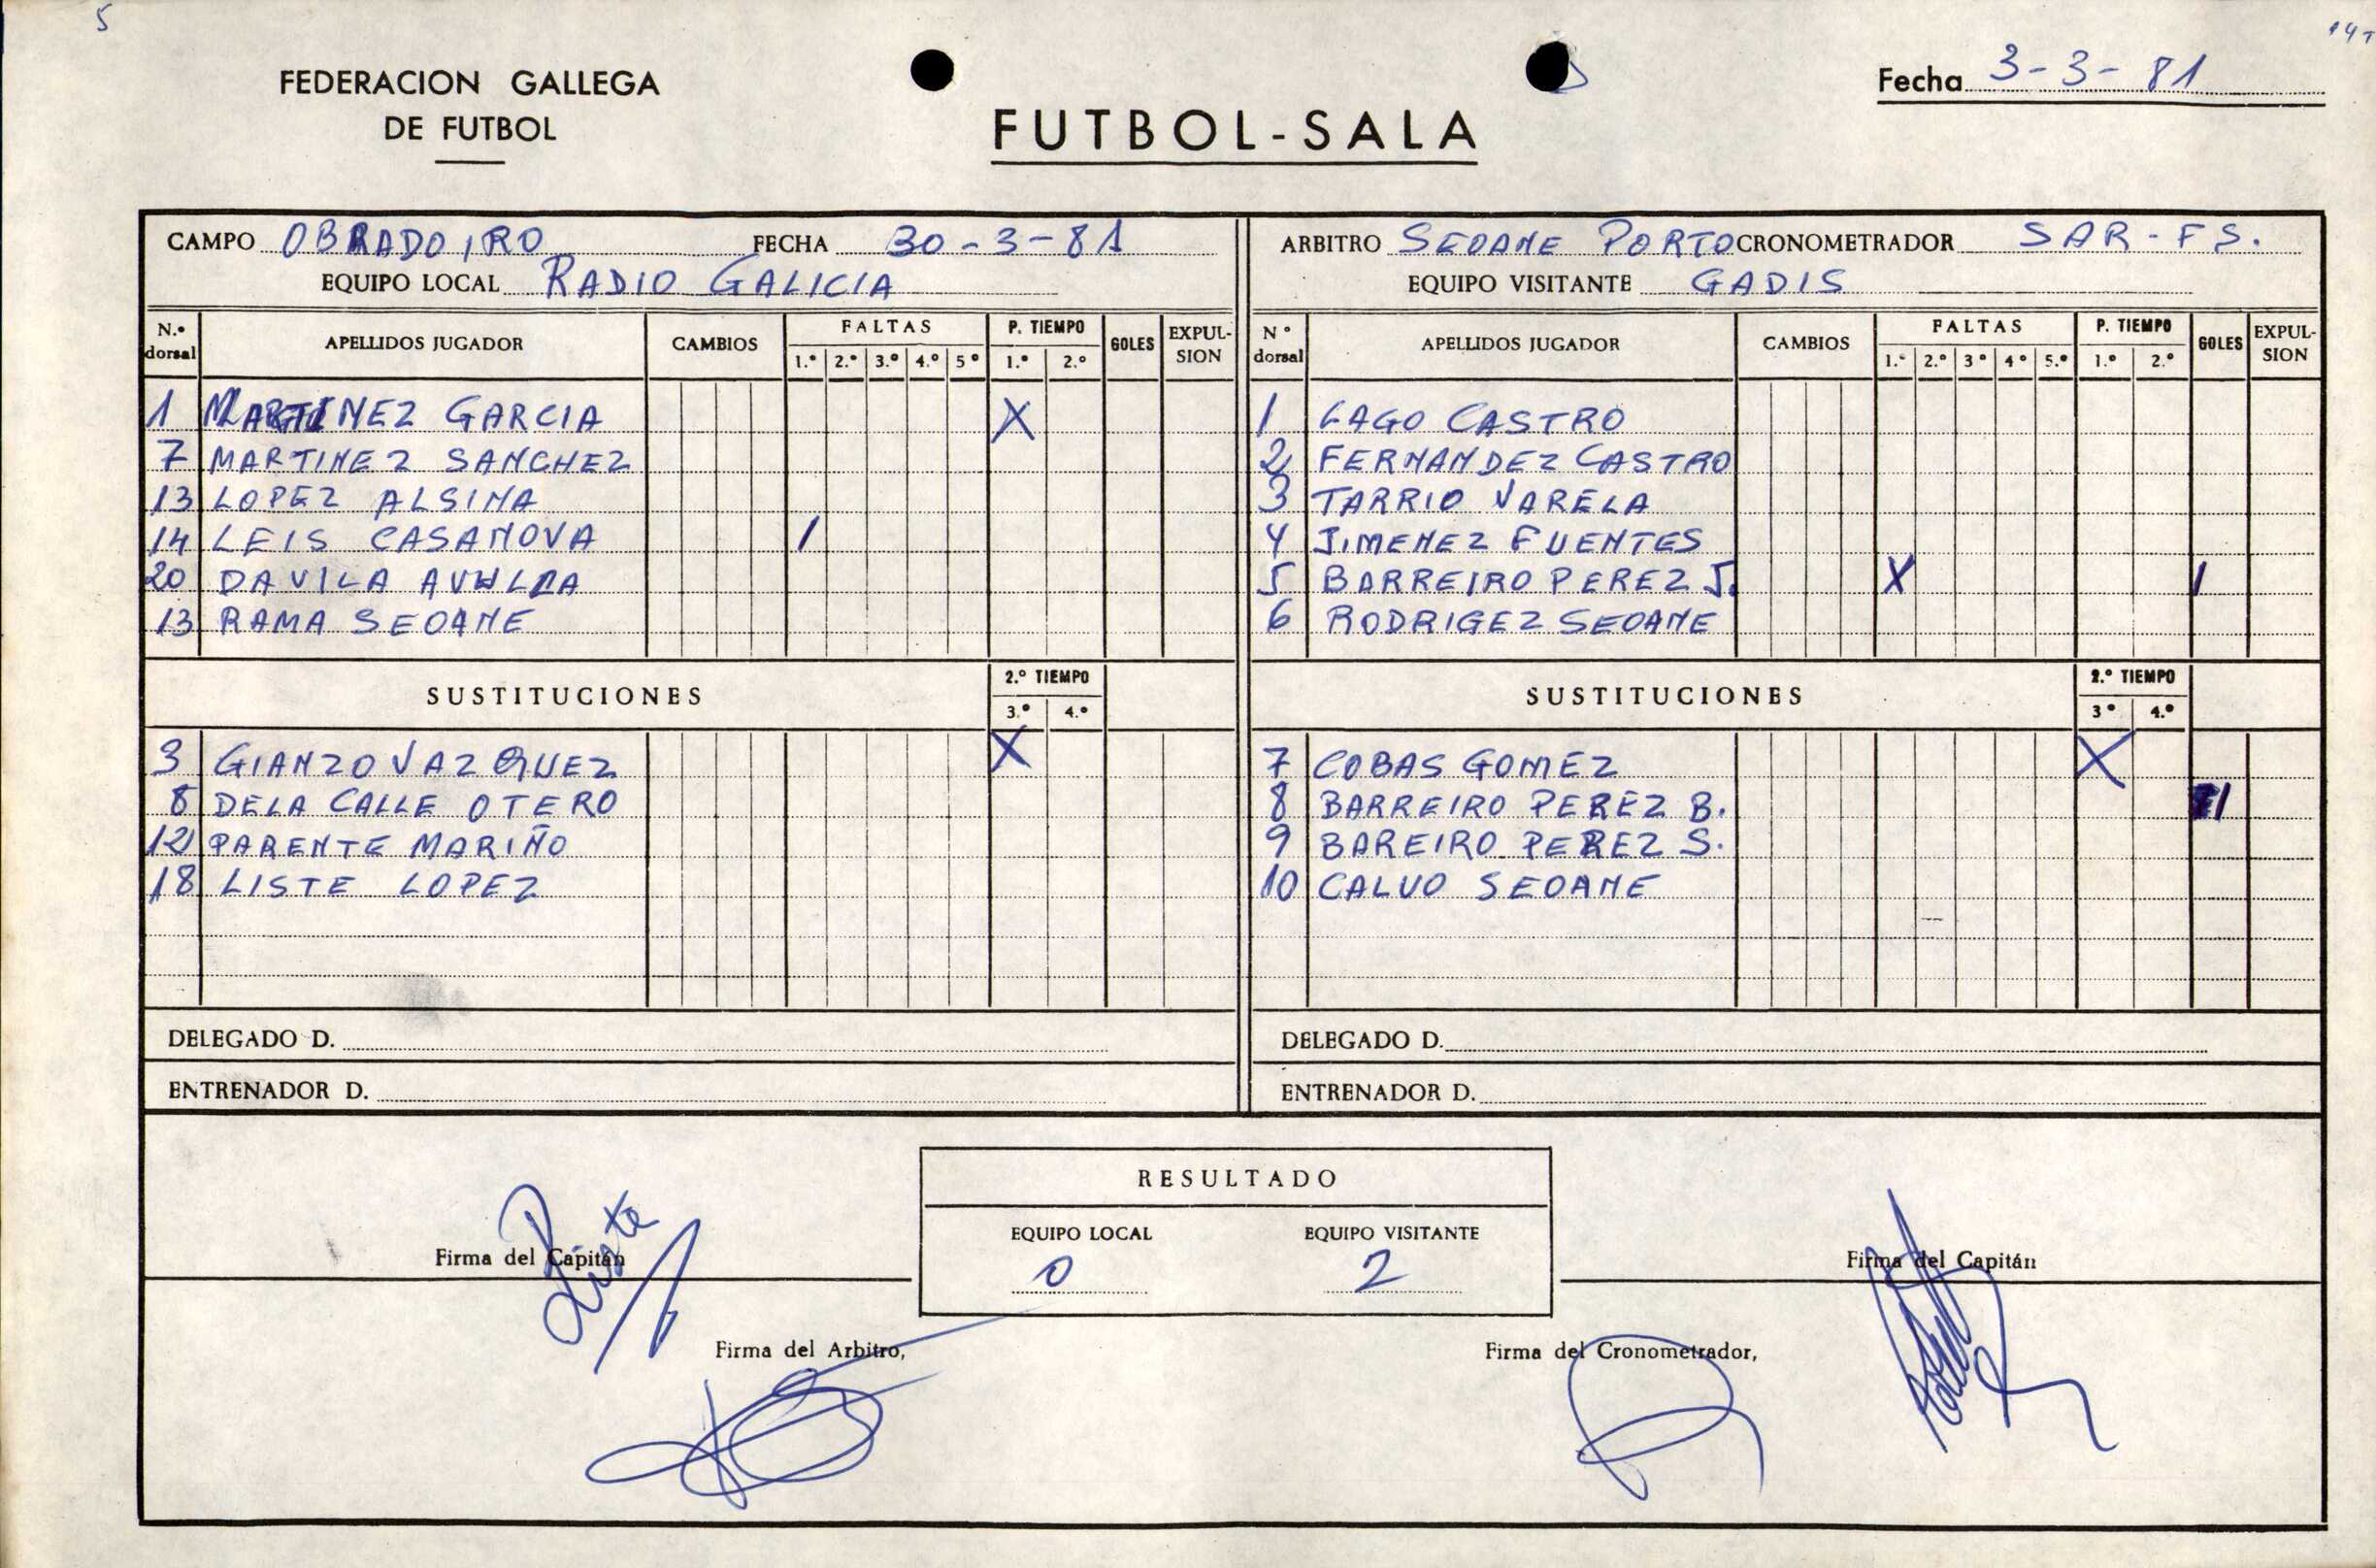 5
FEDERACION GALLEGA
DE FUTBOL
FUTBOL-SALA
Fecha 3-3-81
CAMPO OBRADOIRO FECHA 30-3-81
EQUIPO LOCAL RADIO GALICIA
N.º dorsal APELLIDOS JUGADOR CAMBIOS FALTAS 1.º 2.º 3.º 4.º 5º P. TIEMPO 1.º 2.º GOLES EXPULSION
1 MARTINEZ GARCIA X
7 MARTINEZ SANCHEZ
13 LOPEZ ALSINA
14 LEIS CASANOVA /
20 DAVILA
13 RAMA SEOANE
SUSTITUCIONES 2.º TIEMPO 3.º 4.º
3 GIANZO VAZQUEZ X
8 DELA CALLE OTERO
12 PARENTE MARIÑO
18 LISTE LOPEZ
DELEGADO D.
ENTRENADOR D.
ARBITRO SEOANE PORTO CRONOMETRADOR SAR-FS.
EQUIPO VISITANTE GADIS
Nº dorsal APELLIDOS JUGADOR CAMBIOS FALTAS 1.º 2.º 3º 4º 5.º P. TIEMPO 1.º 2.º GOLES EXPULSION
1 LAGO CASTRO
2 FERNANDEZ CASTRO
3 TARRIO VARELA
4 JIMENEZ FUENTES
5 BARREIRO PEREZ J. X 1
6 RODRIGEZ SEOANE
SUSTITUCIONES 2.º TIEMPO 3º 4.º
7 COBAS GOMEZ X
8 BARREIRO PEREZ B. 1
9 BAREIRO PEREZ S.
10 CALVO SEOANE
DELEGADO D.
ENTRENADOR D.
RESULTADO
EQUIPO LOCAL EQUIPO VISITANTE
0 2
Firma del Capitán
Liste
Firma del Capitán
Firma del Arbitro,
Firma del Cronometrador,